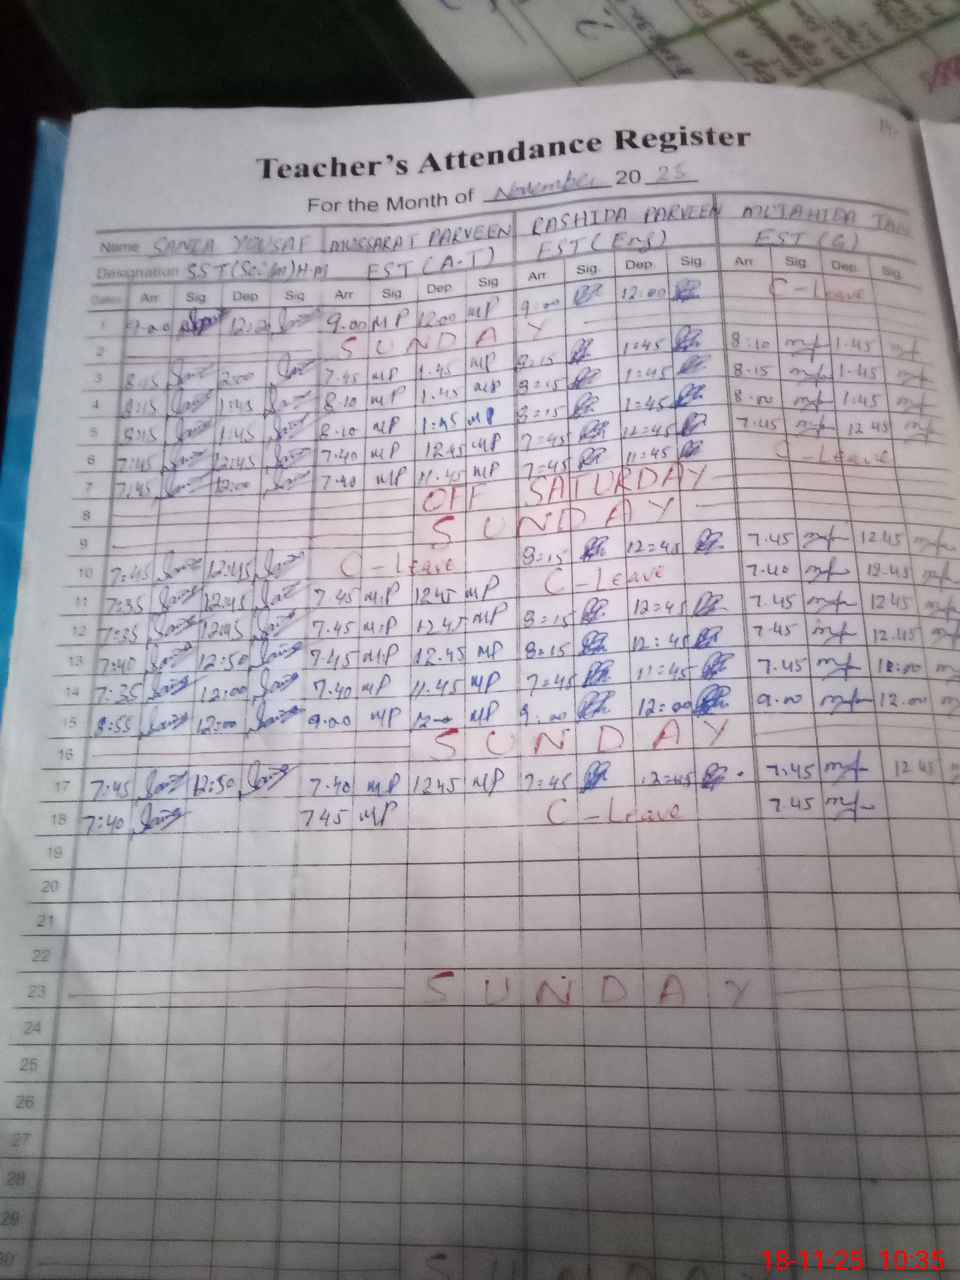 Teacher's Attendance Register
For the Month of November 20 25
Name SANIA YOUSAF MUSSARAT PARVEEN RASHIDA PARVEEN MUJAHIDA
Designation SST H-M EST (A-T) EST (Eng) EST (G)
Dates Arr Sig Dep Sig Arr Sig Dep Sig Arr Sig. Dep. Sig. Arr. Sig. Dep. Sig.
1 9.00 12:20 9.00 MP 12.00 MP 9:00 12:00 C-Leave
2 SUNDAY
3 8:15 2:00 7.45 MP 1.45 MP 8:15 1:45 8:10 1.45
4 8:15 1:45 8.10 MP 1.45 MP 8:15 1:45 8.15 1.45
5 8:15 1:45 8.10 MP 1:45 MP 8:15 1:45 8.00 1.45
6 7:45 12:45 7.40 MP 12.45 MP 7:45 12:45 7.45 12 45
7 7:45 12:00 7.40 MP 11.45 MP 7:45 11:45 C-Leave
8 OFF SATURDAY
9 SUNDAY
10 7:45 12:45 C-Leave 8:15 12:45 7.45 1245
11 7:35 12:45 7.45 MP 1245 MP C-Leave 7.40 12.45
12 7:35 12:45 7.45 MP 12.45 MP 8:15 12:45 7.45 1245
13 7:40 12:50 7.45 MP 12.45 MP 8:15 12:45 7.45 12.45
14 7:35 12:00 7.40 MP 11.45 MP 7:45 11:45 7.45 12.00
15 8:55 12:00 9.00 MP MP 9:00 12:00 9.00 12.00
16 SUNDAY
17 7:45 12:50 7.40 MP 1245 MP 7:45 12:45 7.45 12 45
18 7:40 745 MP C-Leave 7.45
19
20
21
22
23 SUNDAY
24
25
26
27
28
29
30 SUNDAY
18-11-25 10:35